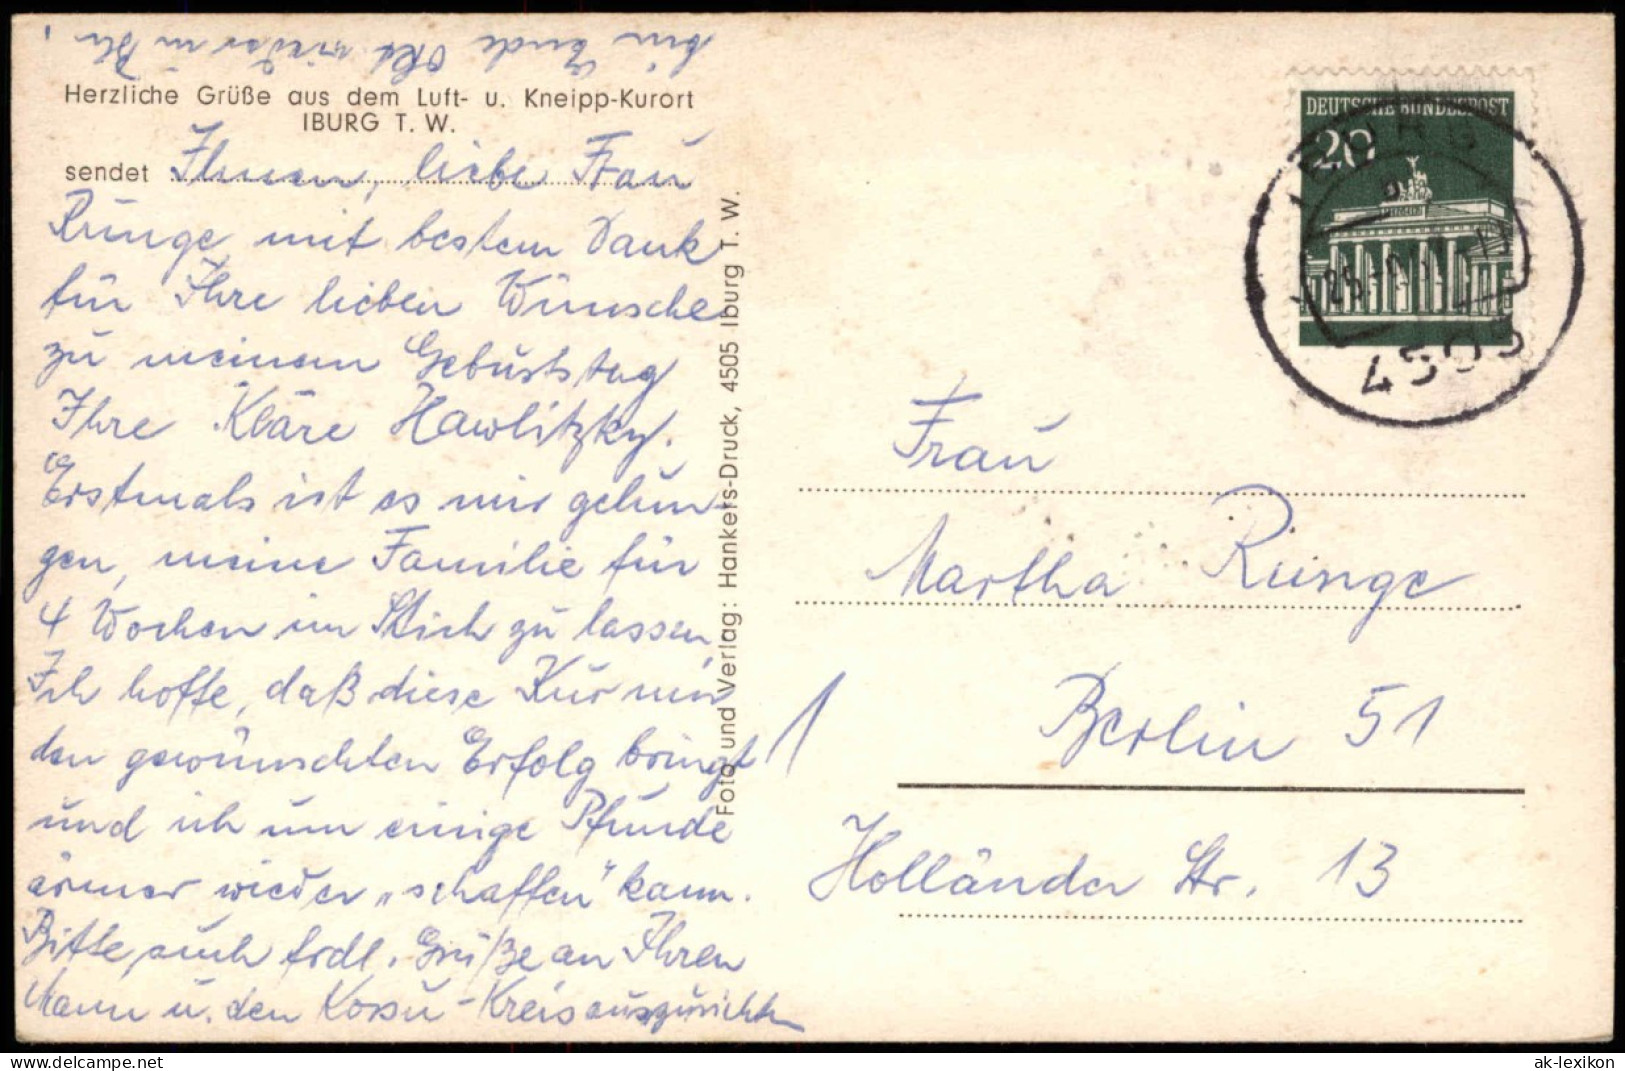 Herzliche Grüße aus dem Luft- u. Kneipp-Kurort
IBURG T. W.
sendet Ihnen, liebe Frau
Runge mit bestem Dank
für Ihre lieben Wünsche
zu meinem Geburtstag
Ihre Kläre Hawlitzky.
Erstmals ist es mir gelun-
gen, meine Familie für
4 Wochen im Stich zu lassen.
Ich hoffe, daß diese Kur mir
den gewünschten Erfolg bringt
und ich um einige Pfunde
ärmer wieder „schaffen" kann.
Bitte auch frdl. Grüße an Ihren
Mann u. den -Kreis auszurichten
bin Ende Okt. wieder in Bln.
Foto und Verlag: Hankers-Druck, 4505 Iburg T. W.
DEUTSCHE BUNDESPOST
20
IBURG
4505
Frau
Martha Runge
1 Berlin 51
Holländer Str. 13
delcampe.net
ak-lexikon